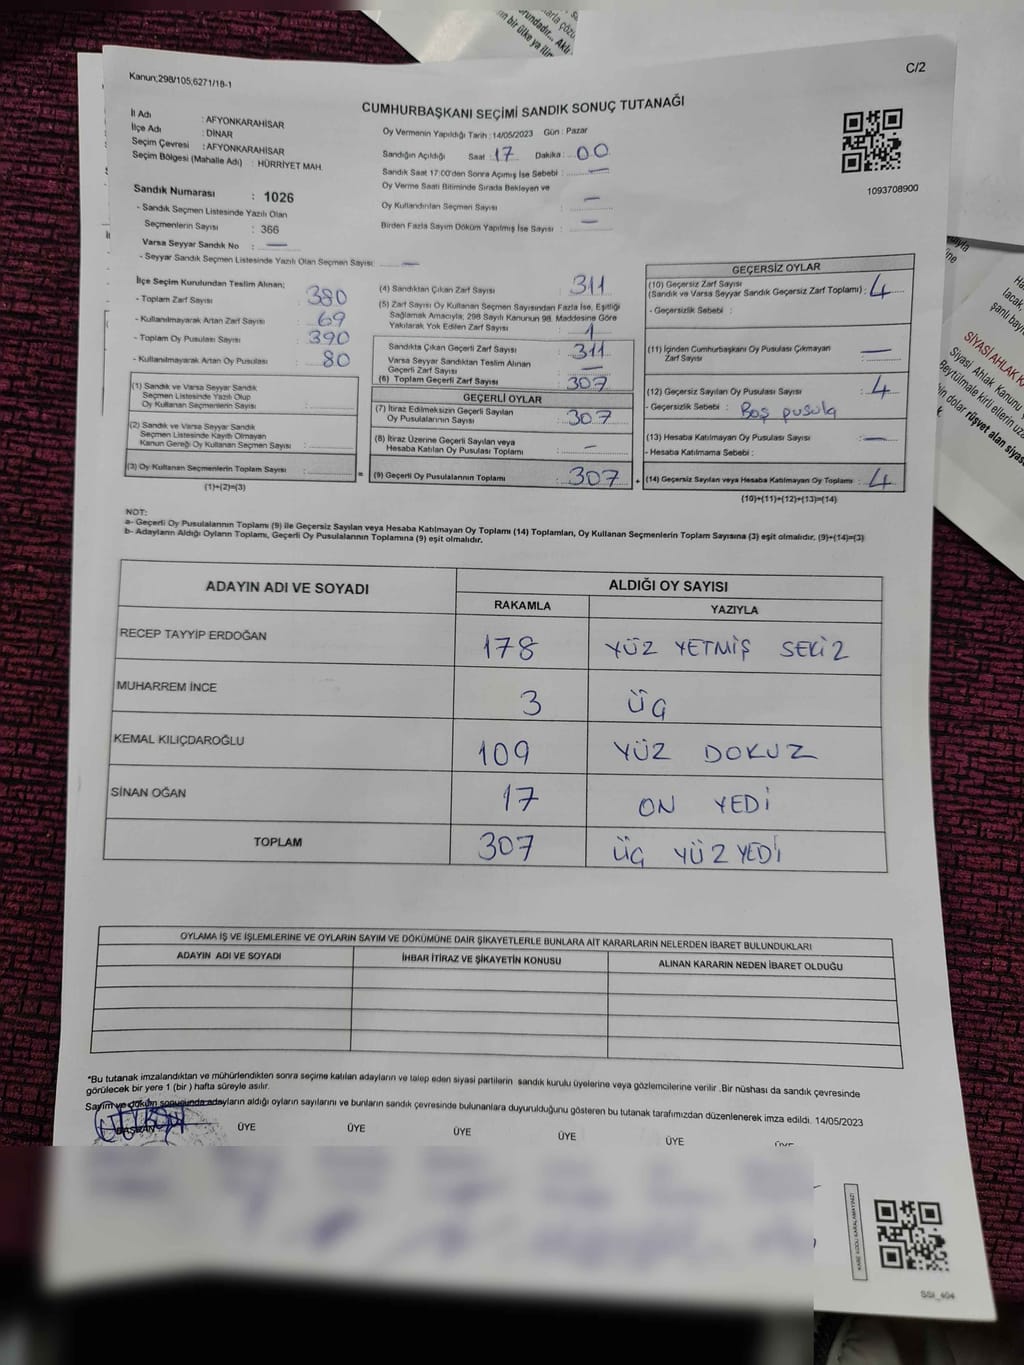 Kanun;298/105,6271/18-1
C/2
CUMHURBAŞKANI SEÇİMİ SANDIK SONUÇ TUTANAĞI
İl Adı : AFYONKARAHİSAR
İlçe Adı : DİNAR
Seçim Çevresi : AFYONKARAHİSAR
Seçim Bölgesi (Mahalle Adı) : HÜRRİYET MAH.
Oy Vermenin Yapıldığı Tarih : 14/05/2023 Gün : Pazar
Sandığın Açıldığı Saat : 17 Dakika : 00
Sandık Saat 17:00'den Sonra Açımış İse Sebebi : —
Oy Verme Saati Bitiminde Sırada Bekleyen ve
Oy Kullandırılan Seçmen Sayısı : —
Birden Fazla Sayım Döküm Yapılmış İse Sayısı : —
1093708900
Sandık Numarası : 1026
- Sandık Seçmen Listesinde Yazılı Olan
Seçmenlerin Sayısı : 366
Varsa Seyyar Sandık No : —
- Seyyar Sandık Seçmen Listesinde Yazılı Olan Seçmen Sayısı: —
İlçe Seçim Kurulundan Teslim Alınan;
- Toplam Zarf Sayısı : 380
- Kullanılmayarak Artan Zarf Sayısı : 69
- Toplam Oy Pusulası Sayısı : 390
- Kullanılmayarak Artan Oy Pusulası : 80
(1) Sandık ve Varsa Seyyar Sandık
Seçmen Listesinde Yazılı Olup
Oy Kullanan Seçmenlerin Sayısı :
(2) Sandık ve Varsa Seyyar Sandık
Seçmen Listesinde Kayıtlı Olmayan
Kanun Gereği Oy Kullanan Seçmen Sayısı :
(3) Oy Kullanan Seçmenlerin Toplam Sayısı :
(1)+(2)=(3)
(4) Sandıktan Çıkan Zarf Sayısı : 311
(5) Zarf Sayısı Oy Kullanan Seçmen Sayısından Fazla İse, Eşitliği
Sağlamak Amacıyla, 298 Sayılı Kanunun 98. Maddesine Göre
Yakılarak Yok Edilen Zarf Sayısı : 1
Sandıkta Çıkan Geçerli Zarf Sayısı : 311
Varsa Seyyar Sandıktan Teslim Alınan
Geçerli Zarf Sayısı : —
(6) Toplam Geçerli Zarf Sayısı : 307
GEÇERLİ OYLAR
(7) İtiraz Edilmeksizin Geçerli Sayılan
Oy Pusulalarının Sayısı : 307
(8) İtiraz Üzerine Geçerli Sayılan veya
Hesaba Katılan Oy Pusulası Toplamı : —
= (9) Geçerli Oy Pusulalarının Toplamı : 307 +
GEÇERSİZ OYLAR
(10) Geçersiz Zarf Sayısı
(Sandık ve Varsa Seyyar Sandık Geçersiz Zarf Toplamı) : 4
- Geçersizlik Sebebi :
(11) İçinden Cumhurbaşkanı Oy Pusulası Çıkmayan
Zarf Sayısı : —
(12) Geçersiz Sayılan Oy Pusulası Sayısı : 4
- Geçersizlik Sebebi : Boş pusula
(13) Hesaba Katılmayan Oy Pusulası Sayısı : —
- Hesaba Katılmama Sebebi :
(14) Geçersiz Sayılan veya Hesaba Katılmayan Oy Toplamı : 4
(10)+(11)+(12)+(13)=(14)
NOT:
a- Geçerli Oy Pusulalarının Toplamı (9) ile Geçersiz Sayılan veya Hesaba Katılmayan Oy Toplamı (14) Toplamları, Oy Kullanan Seçmenlerin Toplam Sayısına (3) eşit olmalıdır. (9)+(14)=(3)
b- Adayların Aldığı Oyların Toplamı, Geçerli Oy Pusulalarının Toplamına (9) eşit olmalıdır.
ADAYIN ADI VE SOYADI ALDIĞI OY SAYISI
RAKAMLA YAZIYLA
RECEP TAYYİP ERDOĞAN 178 YÜZ YETMİŞ SEKİZ
MUHARREM İNCE 3 ÜÇ
KEMAL KILIÇDAROĞLU 109 YÜZ DOKUZ
SİNAN OĞAN 17 ON YEDİ
TOPLAM 307 ÜÇ YÜZ YEDİ
OYLAMA İŞ VE İŞLEMLERİNE VE OYLARIN SAYIM VE DÖKÜMÜNE DAİR ŞİKAYETLERLE BUNLARA AİT KARARLARIN NELERDEN İBARET BULUNDUKLARI
ADAYIN ADI VE SOYADI İHBAR İTİRAZ VE ŞİKAYETİN KONUSU ALINAN KARARIN NEDEN İBARET OLDUĞU
*Bu tutanak imzalandıktan ve mühürlendikten sonra seçime katılan adayların ve talep eden siyasi partilerin sandık kurulu üyelerine veya gözlemcilerine verilir .Bir nüshası da sandık çevresinde
görülecek bir yere 1 (bir ) hafta süreyle asılır.
Sayım ve döküm sonucunda adayların aldığı oyların sayılarını ve bunların sandık çevresinde bulunanlara duyurulduğunu gösteren bu tutanak tarafımızdan düzenlenerek imza edildi. 14/05/2023
BAŞKAN ÜYE ÜYE ÜYE ÜYE ÜYE ÜYE
KARE KODU KARALAMAYINIZ!
SSI_404
SİYASİ AHLAK K
Siyasi Ahlak Kanunu
Beytülmale kirli ellerin uza
rüşvet alan siyas